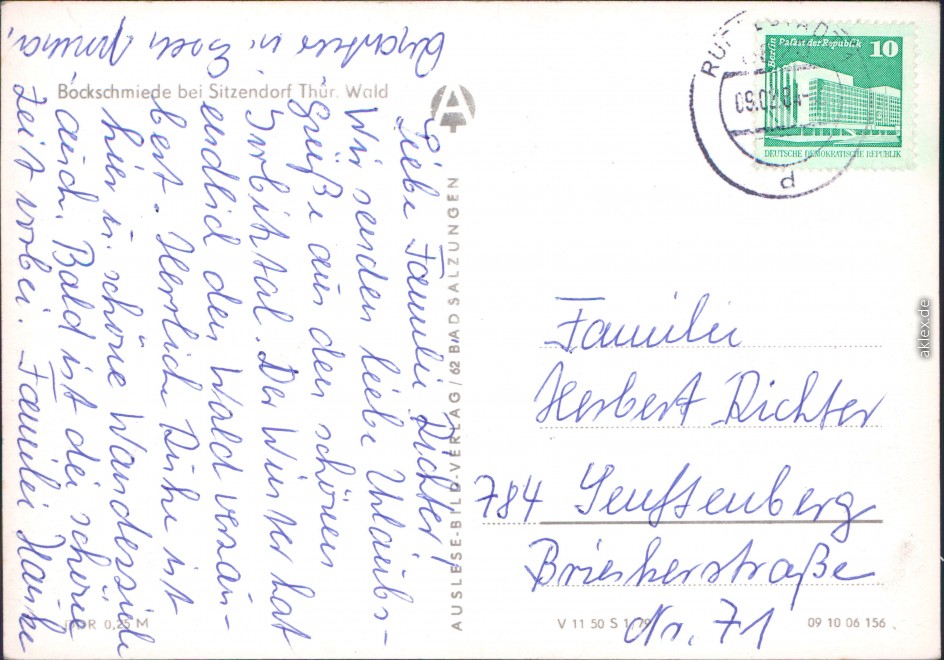 Bockschmiede bei Sitzendorf Thür. Wald
Liebe Familie Richter!
Wir senden liebe Urlaubs-
grüße aus den schönen
Sorbitztal. Der Winter hat
endlich den Wald verzau-
bert. Herrliche Ruhe ist
hier u. schöne Wanderziele
auch. Bald ist die schöne
Zeit vorbei. Familie
AUSLESE-BILD-VERLAG / 62 BAD SALZUNGEN
DDR 0,25 M
V 11 50 S 1/79
09 10 06 156
Berlin
Palast der Republik
10
DEUTSCHE DEMOKRATISCHE REPUBLIK
09.02.84
d
Familie
Herbert Richter
784 Senftenberg
Brieskerstraße
Nr. 71
akleX.de